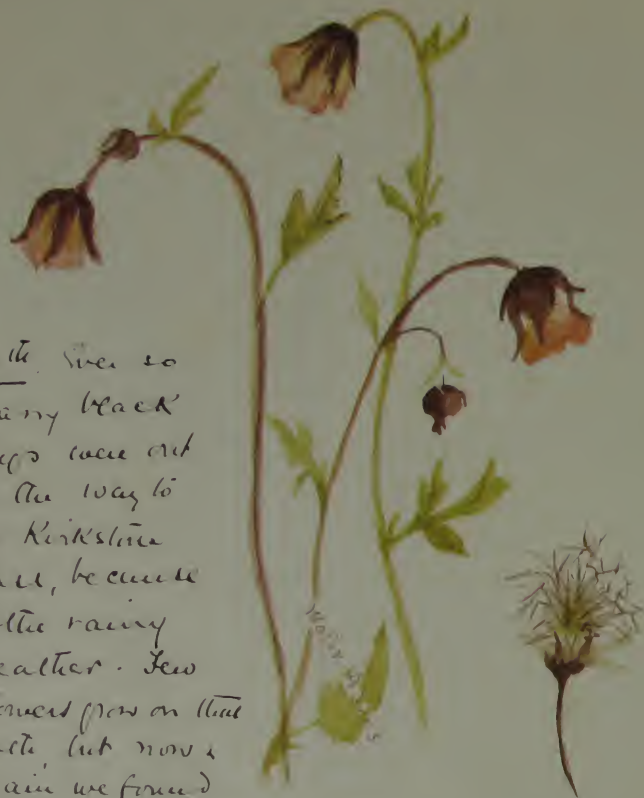 ith. Ever so
any black
ugs were out
the way to
Kirkstone
because
the rainy
eather. Few
owers grow on that
but now &
ain we found
Water Avens